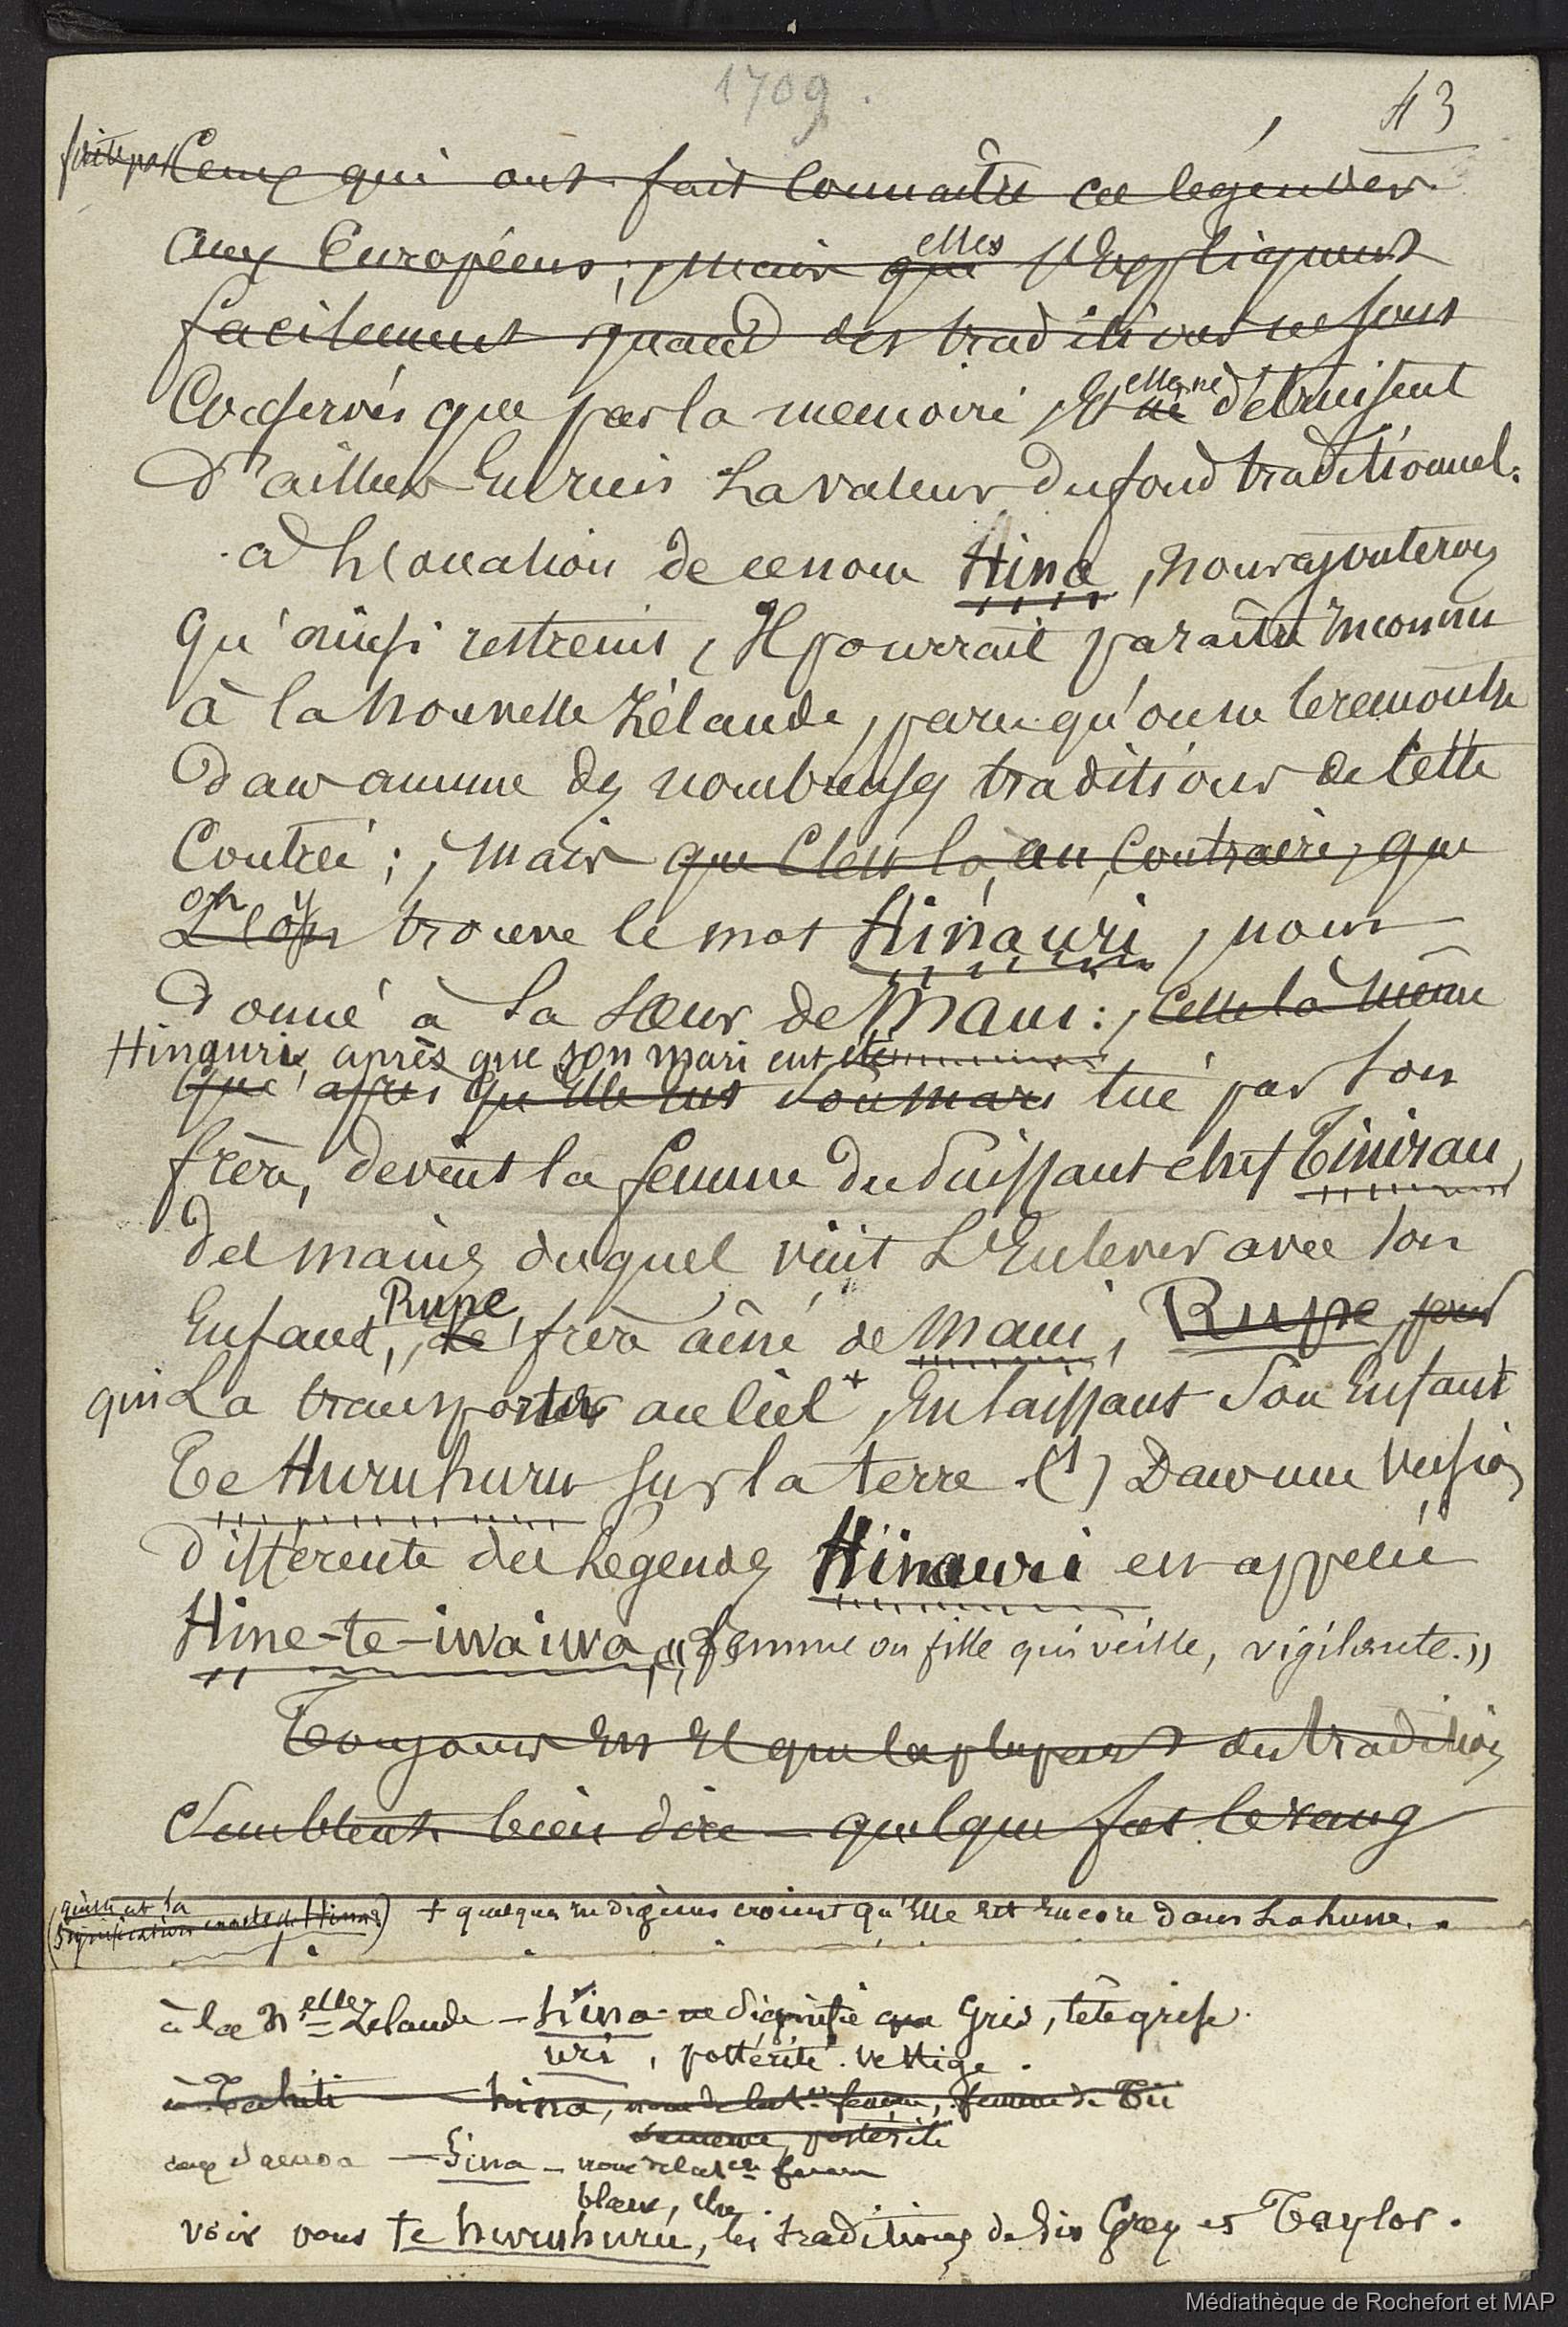 1709.
43
Ceux qui ont fait connaitre ces légendes
aux Européens ; mais elles s'expliquent
facilement quand des traditions ne sont
conservés que par la memoire, Et elles ne détruisent
d'ailleurs En rien la valeur du fond traditionnel.
à l'occation de ce nom Hina, nous ajouterons
qu'ainsi restreint, Il pourrait paraître Inconnu
à la nouvelle Zélande, parce qu'on ne le rencontre
dans aucune des nombreuses traditions de cette
Contrée ; mais que c'est là, au contraire, que
on y
L'on trouve le mot Hinauri, nom
donné à la soeur de Maui : celle là même
Hinauri, après que son mari eut été
que après qu'elle eut son mari tué par son
frère, devint la femme du puissant chef Tinirau,
des mains duquel vint L'Enlever avec son
Enfant, Rupe, le frère aîné de Maui, Rupe, pour
qui La transporter au ciel +, En laissant son Enfant
Te Huruhuru sur la terre. (1) Dans une version
différente des Légendes Hinauri est appelée
Hine-te-iwaiwa, « femme ou fille qui veille, vigilante. »
Toujours Est Il que la plupart des traditions
semblent bien dire quelque fut le rang
(quelle est la
signification exacte de Hina?) + quelques Indigènes croient qu'Elle est Encore dans La lune.
à la Nelle Zelande - hina - ne signifie que Gris, tête grise.
uri, postérité. vestige.
à Tahiti - hina, nom de la 1ère femme, femme de Tii
postérité
aux Samoa - Sina - nom de la 1ère femme
blanc, etc.
voir pour te huruhuru, les traditions de Sir Grey et Taylor.
Médiathèque de Rochefort et MAP